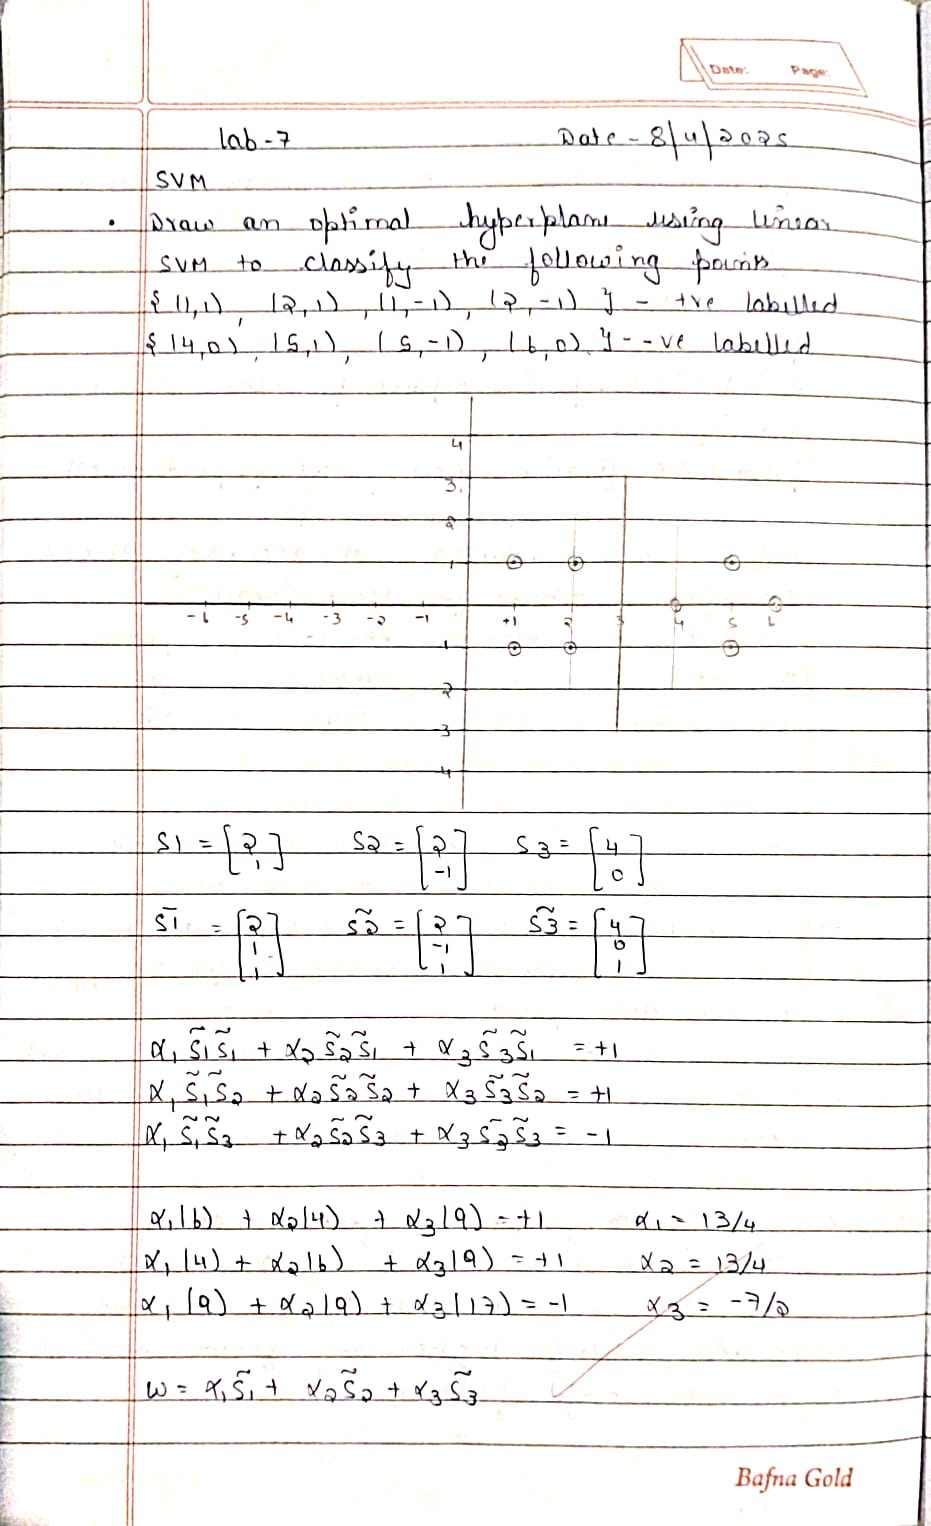 Date: Page:
Lab-7 Date - 8/4/2025
SVM
• Draw an optimal hyperplane using linear
SVM to classify the following points
{ (1,1), (2,1), (1,-1), (2,-1) } - +ve labelled
{ (4,0), (5,1), (5,-1), (6,0) } - -ve labelled
4
3
2
1
-6 -5 -4 -3 -2 -1 +1 2 3 4 5 6
1
2
3
4
S1 = [2 1] S2 = [2 -1] S3 = [4 0]
S̄1 = [2 1 1] S̃2 = [2 -1 1] S̃3 = [4 0 1]
α₁ S̃₁S̃₁ + α₂ S̃₂S̃₁ + α₃ S̃₃S̃₁ = +1
α₁ S̃₁S̃₂ + α₂ S̃₂S̃₂ + α₃ S̃₃S̃₂ = +1
α₁ S̃₁S̃₃ + α₂ S̃₂S̃₃ + α₃ S̃₃S̃₃ = -1
α₁(6) + α₂(4) + α₃(9) = +1 α₁ = 13/4
α₁(4) + α₂(6) + α₃(9) = +1 α₂ = 13/4
α₁(9) + α₂(9) + α₃(17) = -1 α₃ = -7/2
w = α₁S̃₁ + α₂S̃₂ + α₃S̃₃
Bafna Gold